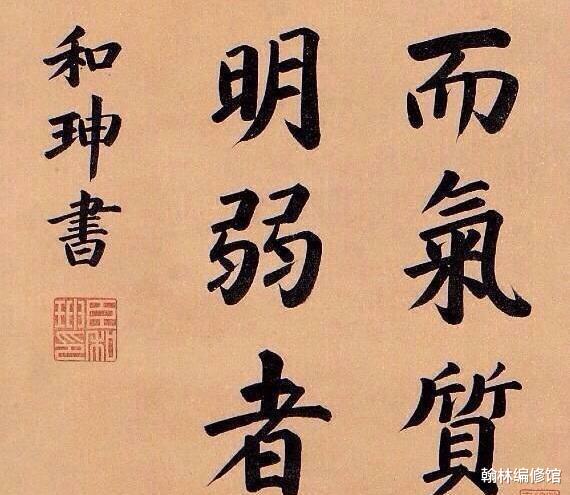 而氣質
明弱者
和珅書
臣和珅印
翰林编修馆